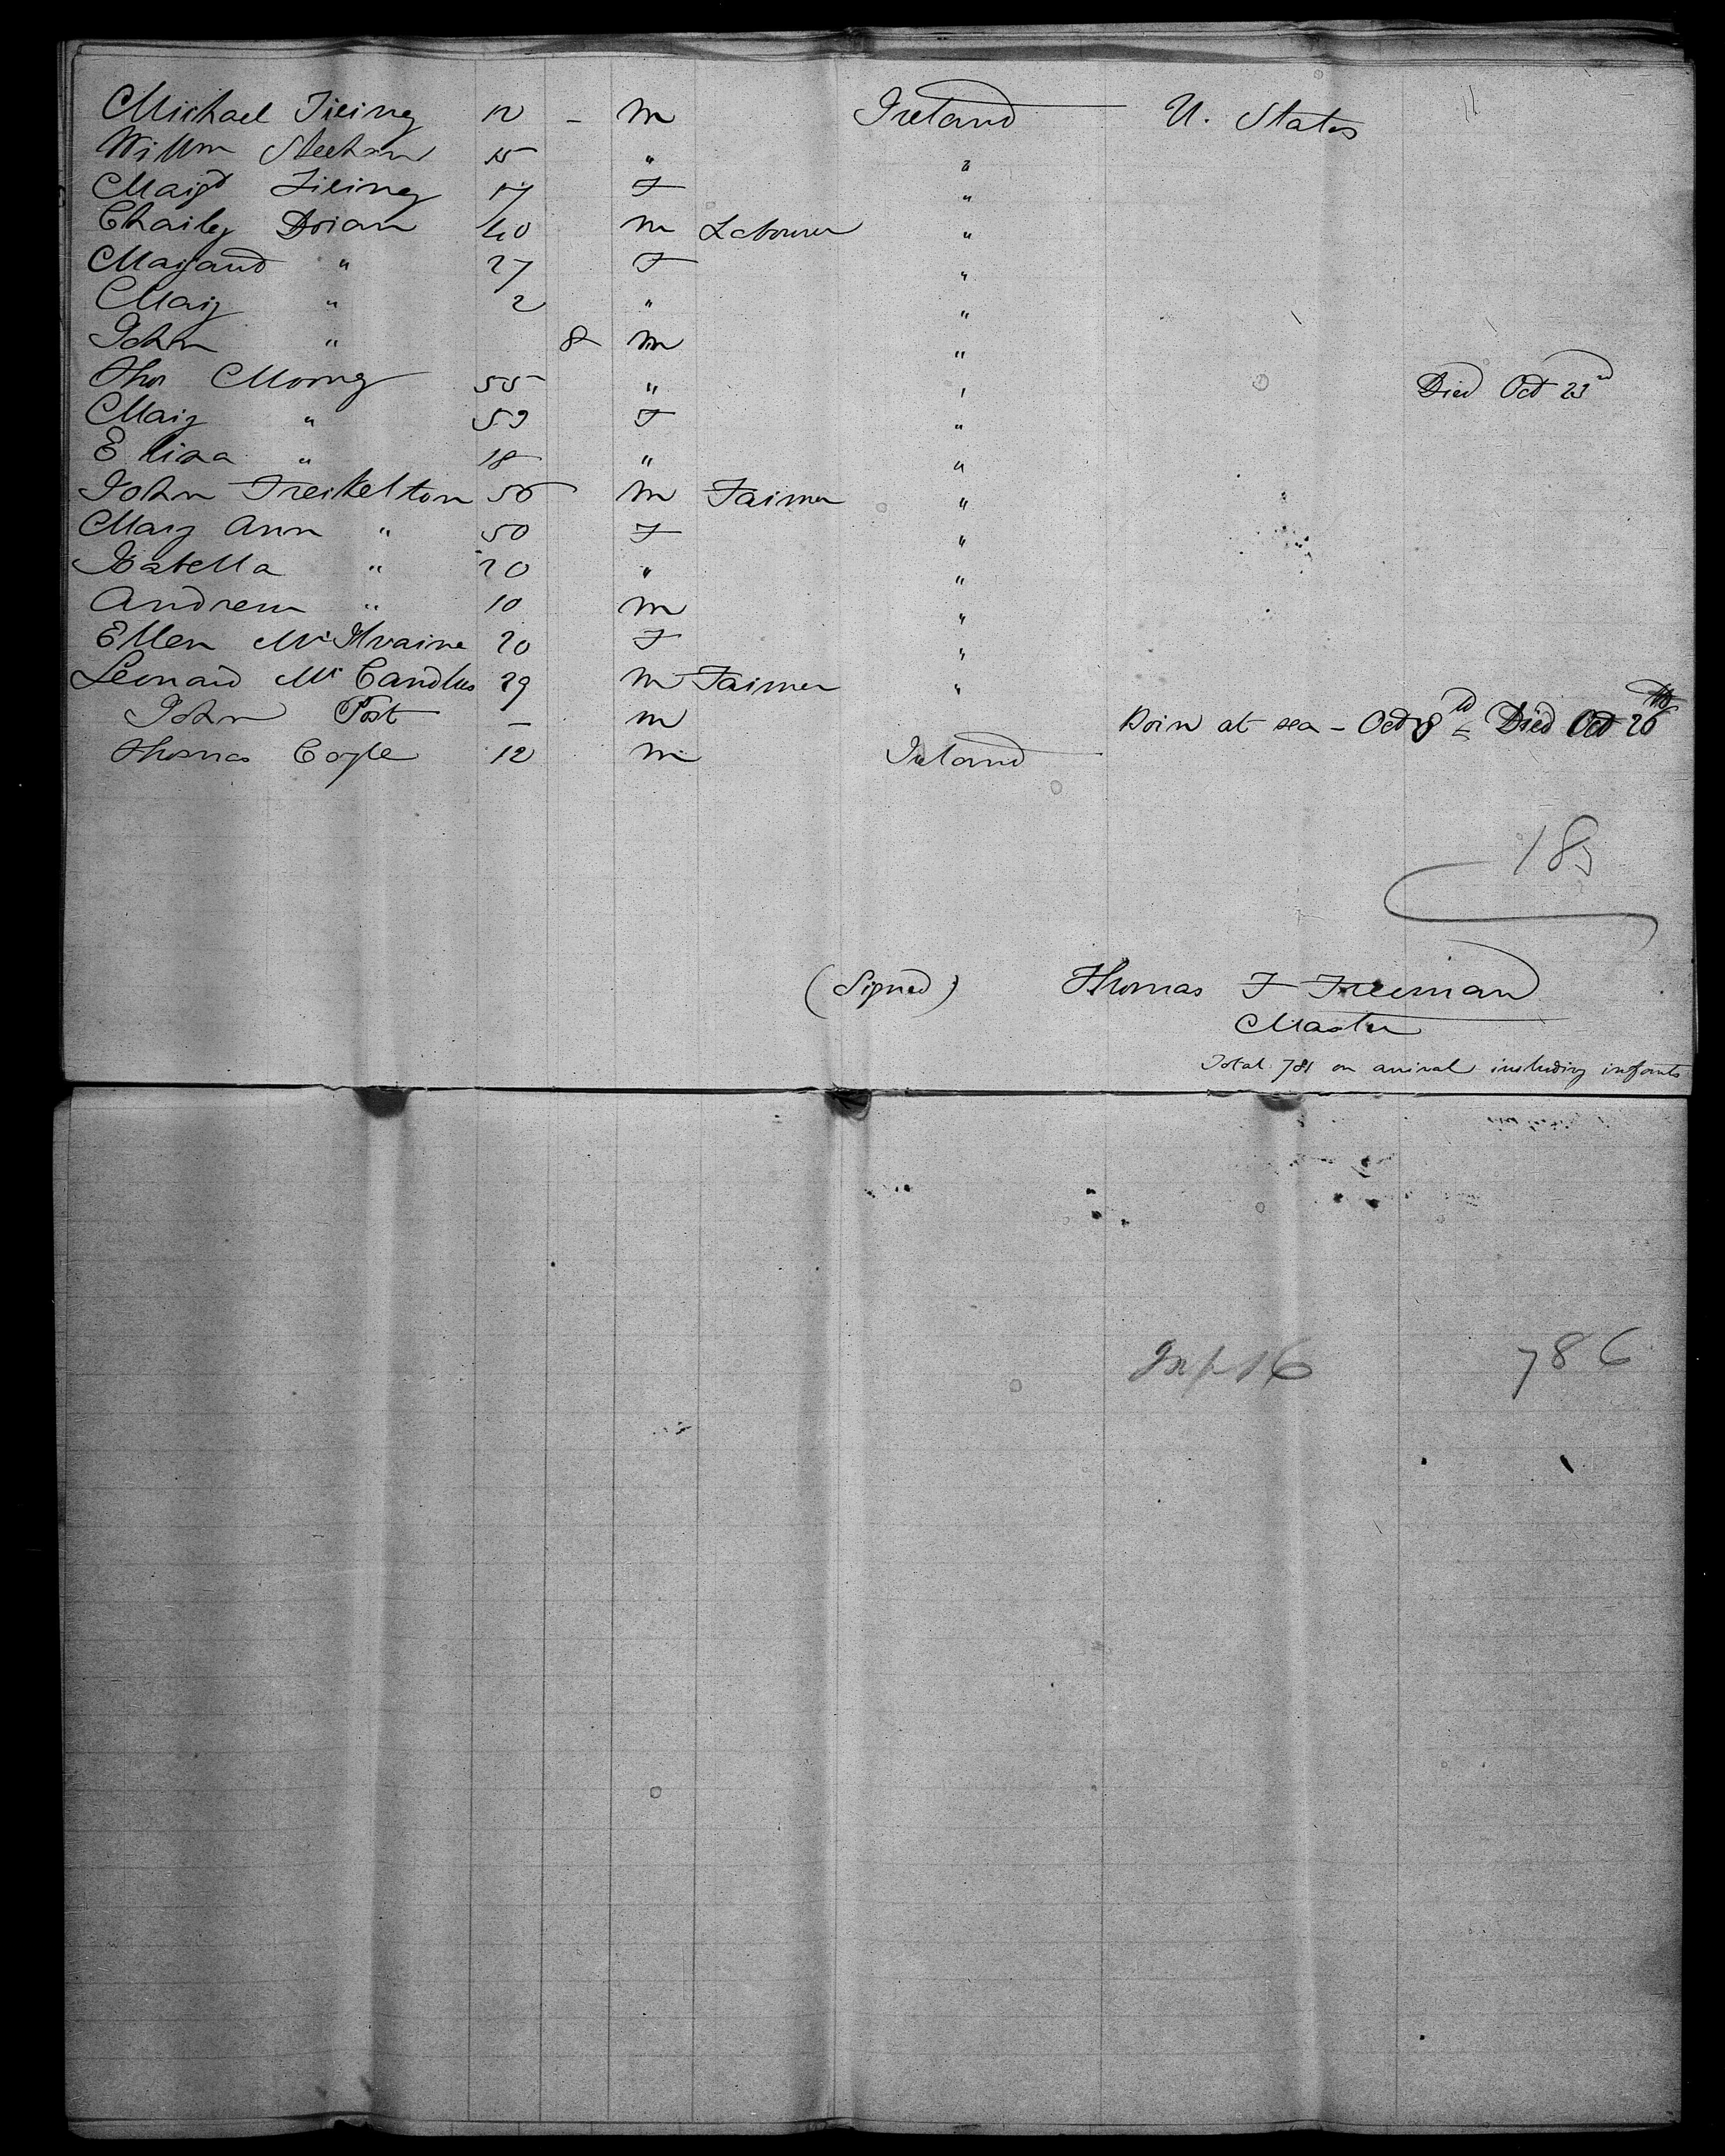 Michael Tieing 12 - m Ireland U. States
Willm Steehan 15 " "
Margt Tieing 17 F "
Charley Dorian 40 m Labourer "
Margand " 27 F "
Mary " 2 " "
John " 8 m "
Thos Morny 55 " " Died Oct 23rd
Mary " 59 F "
Eliza " 18 " "
John Freckelton 56 m Farmer "
Mary Ann " 50 F "
Isabella " 20 " "
Andrew " 10 m "
Ellen McIlvaine 20 F "
Leonard McCandlus 29 m Farmer "
John Post - m Born at sea - Oct 8th Died Oct 26th
Thomas Cogle 12 m Ireland
185
(Signed) Thomas F Freeman
Master
Total 781 on arrival including infants
Inf 16 786